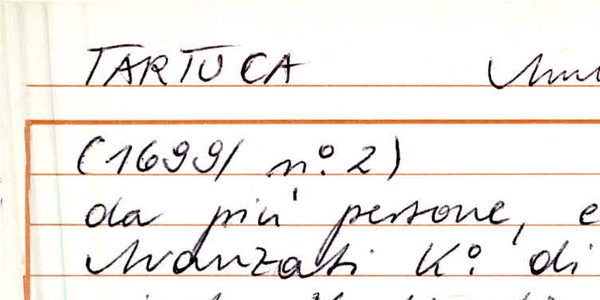 TARTUCA
(1699/ n.º 2)
da più persone, e
Avanzati K.º di